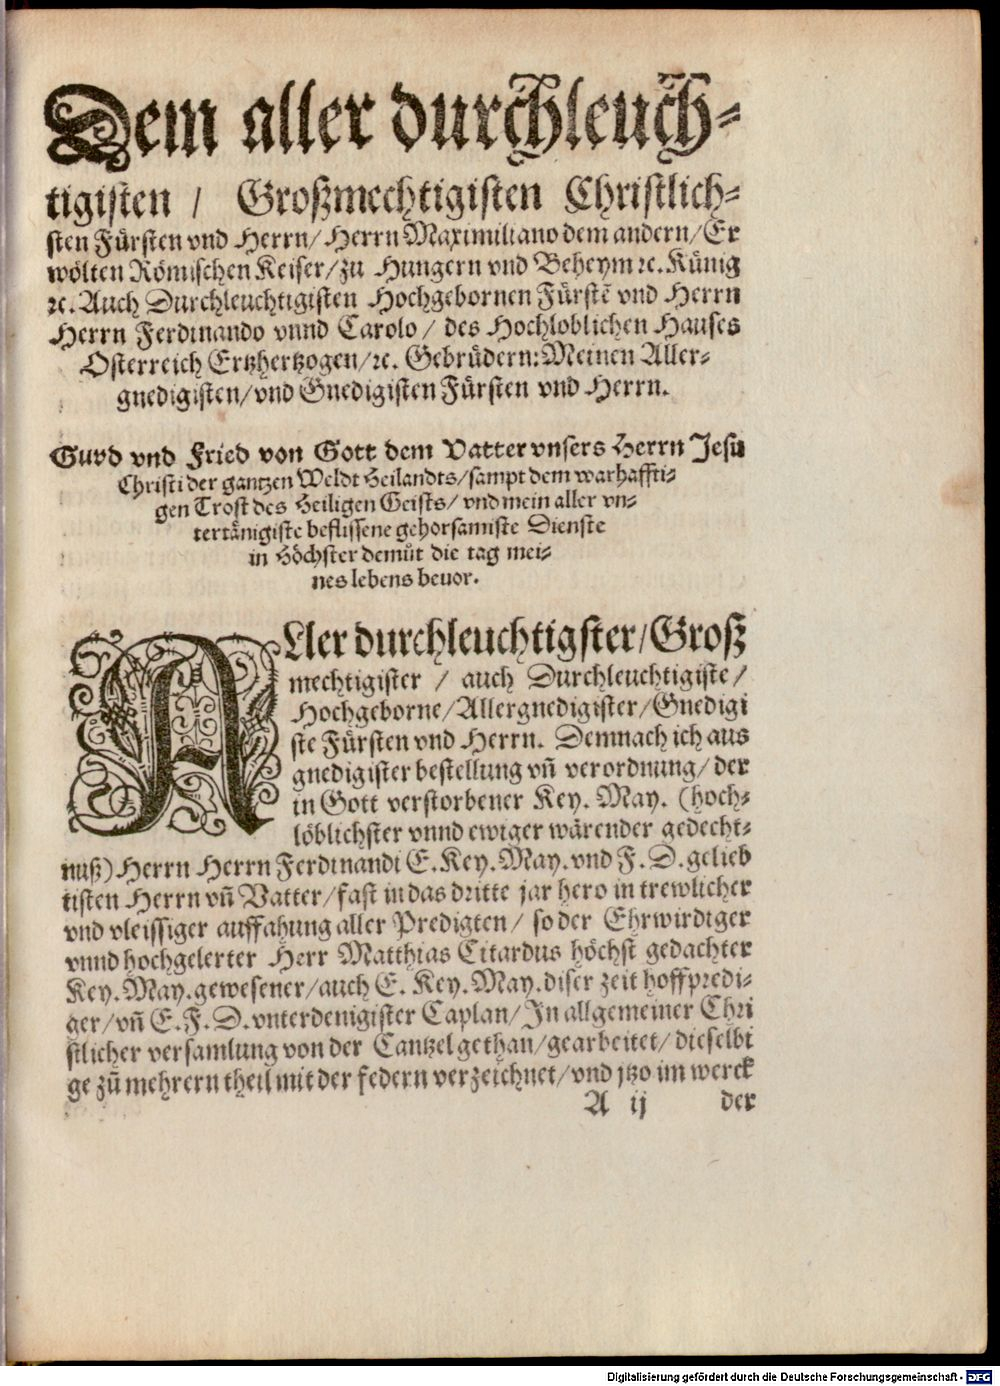 Dem aller durchleuch-
tigisten / Großmechtigisten Christlich-
sten Fürsten vnd Herrn/ Herrn Maximiliano dem andern/ Er
wölten Römischen Keiser/ zu Hungern vnd Beheym ꝛc. Künig
ꝛc. Auch Durchleuchtigisten Hochgebornen Fürstē vnd Herrn
Herrn Ferdinando vnnd Carolo / des Hochloblichen Hauses
Osterreich Ertzhertzogen/ ꝛc. Gebrüdern: Meinen Aller-
gnedigisten/ vnd Gnedigisten Fürsten vnd Herrn.
Gnad vnd Fried von Gott dem Vatter vnsers Herrn Jesu
Christi der gantzen Weldt Heilandts/ sampt dem warhaffti-
gen Trost des Heiligen Geists/ vnd mein aller vn-
tertänigiste beflissene gehorsamiste Dienste
in Höchster demůt die tag mei-
nes lebens beuor.
ALler durchleuchtigster/ Groß
mechtigister / auch Durchleuchtigiste/
Hochgeborne/ Allergnedigister/ Gnedigi
ste Fürsten vnd Herrn. Demnach ich aus
gnedigister bestellung vn̄ verordnung/ der
in Gott verstorbener Key. May. (hoch-
löblichster vnnd ewiger wärender gedecht-
nuß) Herrn Herrn Ferdinandi E. Key. May. vnd F. D. gelieb
tisten Herrn vn̄ Vatter/ fast in das dritte jar hero in trewlicher
vnd vleissiger auffahung aller Predigten/ so der Ehrwirdiger
vnnd hochgelerter Herr Matthias Citardus höchst gedachter
Key. May. gewesener/ auch E. Key. May. diser zeit hoffpredi-
ger/ vn̄ E. F. D. vnterdenigister Caplan/ In allgemeiner Chri
stlicher versamlung von der Cantzel gethan/ gearbeitet/ dieselbi
ge zů mehrern theil mit der federn verzeichnet/ vnd jtzo im werck
A ij der
Digitalisierung gefördert durch die Deutsche Forschungsgemeinschaft - DFG